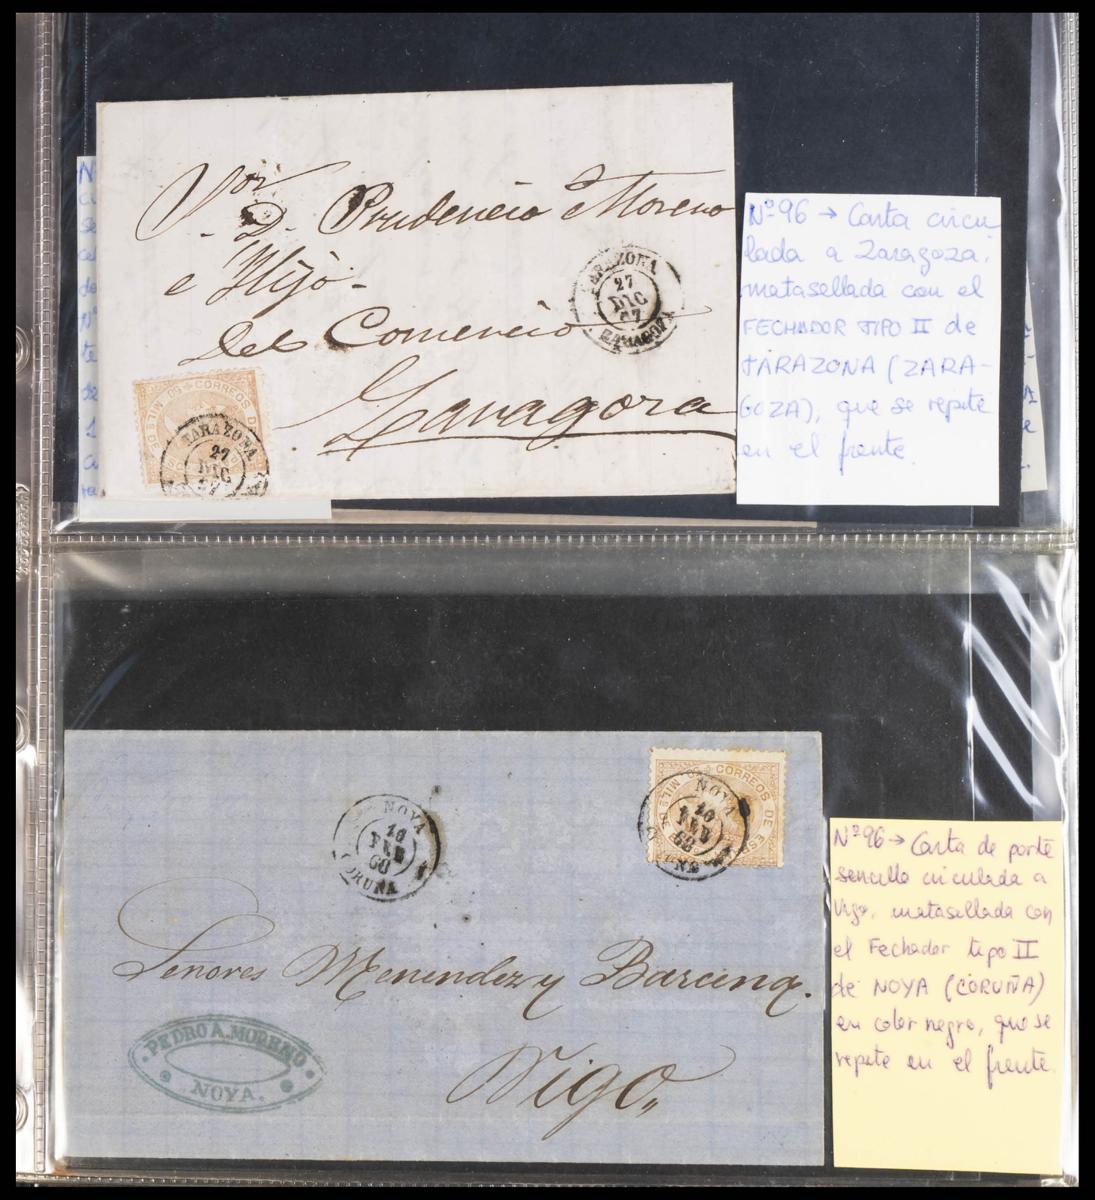 Sor. D. Prudencio Moreno
e Hijo.
Del Comercio
Zaragoza
TARAZONA
27
DIC
67
ZARAGOZA
CORREOS DE
50 MIL S DE
TARAZONA
27
DIC
67
Nº 96 → Carta circu
lada a Zaragoza,
matasellada con el
FECHADOR TIPO II de
TARAZONA (ZARA-
GOZA), que se repite
en el frente.
NOYA
16
FEB
68
CORUÑA
CORREOS DE
50 MIL S DE
NOYA
16
FEB
68
Señores Menendez y Barcena.
Vigo,,
PEDRO A. MORENO
NOYA.
Nº 96 → Carta de porte
sencillo circulada a
Vigo, matasellada con
el Fechador tipo II
de NOYA (CORUÑA)
en color negro, que se
repite en el frente.